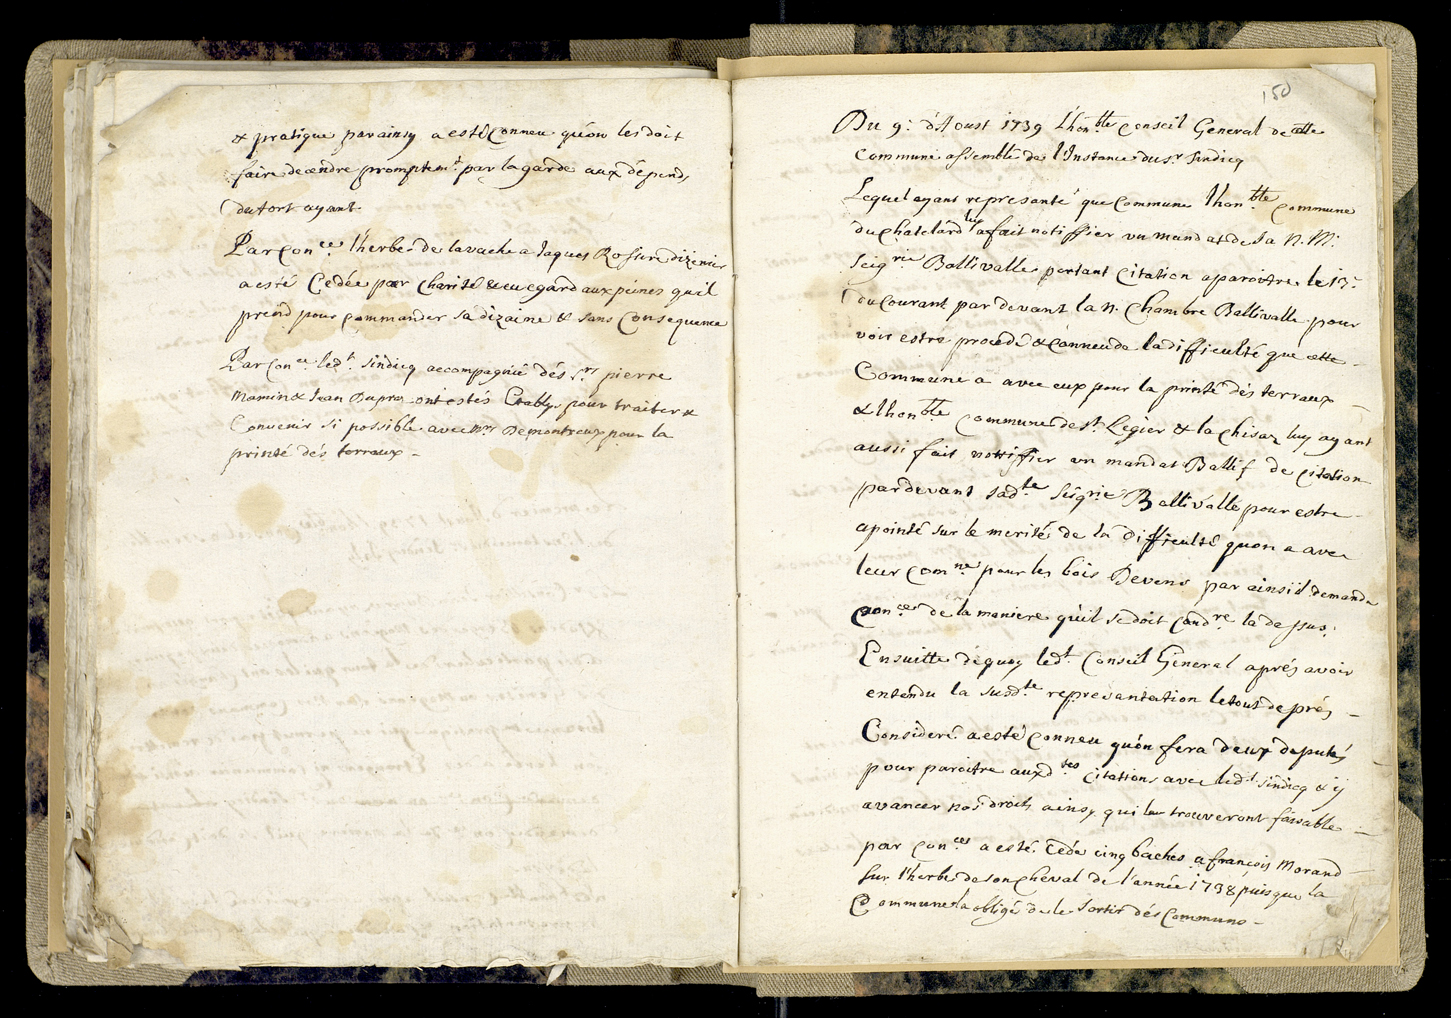 & pratique parainsy a esté Conneu qu'on les doit
faire decendre promptem.t par la garde aux dépends
du tort ayant
Par Con.ce l'herbe de la vache a Jaques Rossire dizenier
a esté Cedée par charité & eu egard aux peines quil
prend pour commander sa dizaine & sans Consequence
Par Con.ce led.t Sindicq accompagné dés S.rs pierre
Mamin & Jean Dupraz ont estés Etablys pour traiter &
Convenir si possible avec M.rs De Montreux pour la
printé dés terraux -
150
Du 9.e d'Aoust 1739 L'hon.ble Conseil General de cette
Commune assemblé de l'Instance du S.r Sindicq
Lequel ayant representé que Comme l'hon.ble Commune
du Chatelard luy a fait notiffier un mandat de Sa N. M.
Seig.rie Ballivalle portant Citation a paroitre le 13.e
du Courant par devant la N. Chambre Ballivalle pour
voir estre procedé & Conneu de la difficulté que cette
Commune a avec eux pour la printé dés terraux
& l'hon.ble Commune de S.t Legier & la Chisaz luy ayant
aussi fait notiffier un mandat Ballif de Citation
par devant sad.te Seig.rie Ballivalle pour estre
apointé sur le merité de la Difficulté quon a avec
leur Com.ne pour les bois Devens par ainsi il demande
Con.ce de la maniere qu'il se doit Cond.re la dessus.
Ensuitte dequoy led.t Conseil General aprés avoir
entendu la susd.te represantation le tout de prés
Consideré a esté Conneu qu'on fera deux deputés
pour paroitre auxd.tes Citations avec led.t Sindicq & ÿ
avancer nos droits ainsy qui les trouveront faisable
par Con.ces a esté Cedé cinq baches a françois Morand
sur l'herbe de son Cheval de l'année 1738 puisque la
Commune la obligé de le Sortir dés Communs -